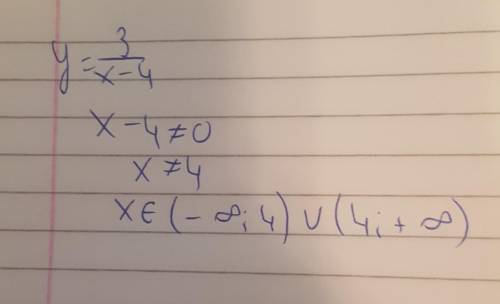 y = 3/(x-4)
x - 4 ≠ 0
x ≠ 4
x ∈ (- ∞; 4) ∪ (4; + ∞)